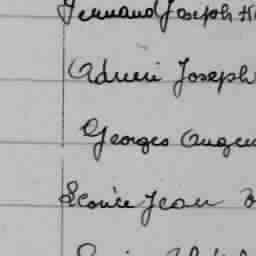 Fernand Joseph H
Adrien Joseph
Georges Augus
Léonce Jean